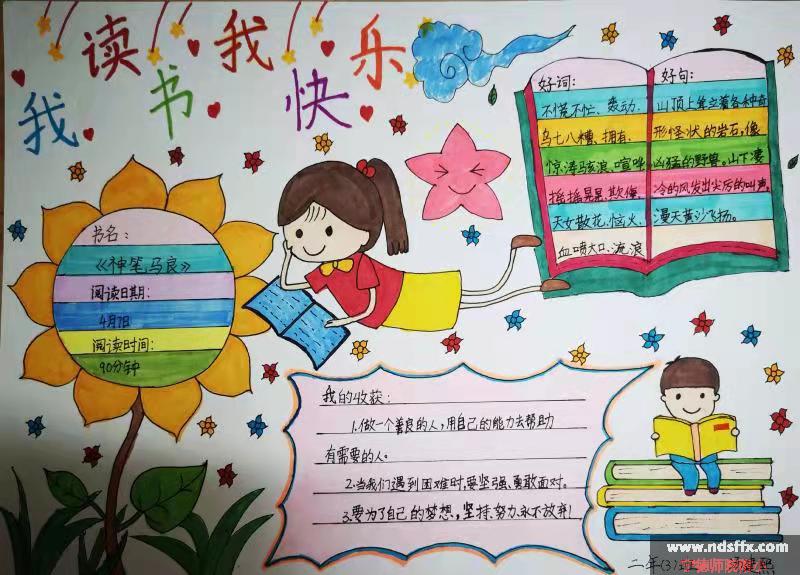 我读书我快乐
书名：
《神笔马良》
阅读日期：
4月7日
阅读时间：
90分钟
好词：
不慌不忙、轰动、
乌七八糟、拥有、
惊涛骇浪、喧哗
摇摇晃晃、欺侮、
天女散花、恼火、
血喷大口、流浪
好句：
山顶上耸立着各种奇
形怪状的岩石，像
凶猛的野兽。山下凄
冷的风发出尖厉的叫声，
漫天黄沙飞扬。
我的收获：
1.做一个善良的人，用自己的能力去帮助
有需要的人。
2.当我们遇到困难时，要坚强、勇敢面对。
3.要为了自己的梦想，坚持、努力、永不放弃！
二年(3)
www.ndsffx.com